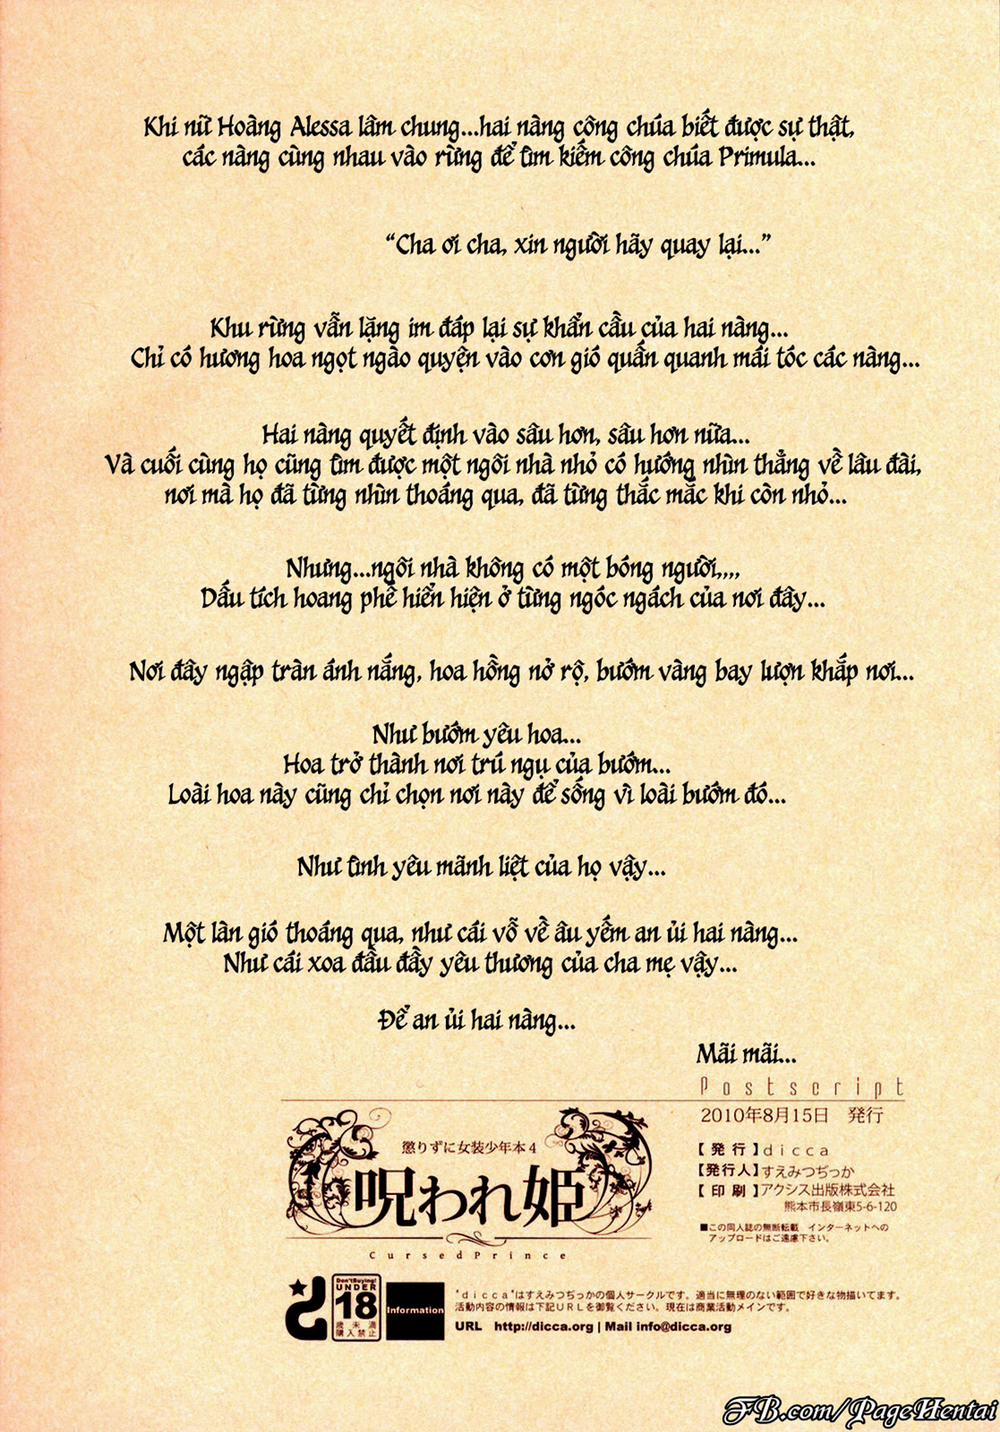 Khi nữ Hoàng Alessa lâm chung...hai nàng công chúa biết được sự thật,
các nàng cùng nhau vào rừng để tìm kiếm công chúa Primula...
“Cha ơi cha, xin người hãy quay lại...”
Khu rừng vẫn lặng im đáp lại sự khẩn cầu của hai nàng...
Chỉ có hương hoa ngọt ngào quyện vào cơn gió quấn quanh mái tóc các nàng...
Hai nàng quyết định vào sâu hơn, sâu hơn nữa...
Và cuối cùng họ cũng tìm được một ngôi nhà nhỏ có hướng nhìn thẳng về lâu đài,
nơi mà họ đã từng nhìn thoáng qua, đã từng thắc mắc khi còn nhỏ...
Nhưng...ngôi nhà không có một bóng người,,,,
Dấu tích hoang phế hiển hiện ở từng ngóc ngách của nơi đây...
Nơi đây ngập tràn ánh nắng, hoa hồng nở rộ, bướm vàng bay lượn khắp nơi...
Như bướm yêu hoa...
Hoa trở thành nơi trú ngụ của bướm...
Loài hoa này cũng chỉ chọn nơi này để sống vì loài bướm đó...
Như tình yêu mãnh liệt của họ vậy...
Một làn gió thoáng qua, như cái vỗ về âu yếm an ủi hai nàng...
Như cái xoa đầu đầy yêu thương của cha mẹ vậy...
Để an ủi hai nàng...
Mãi mãi...
Postscript
2010年8月15日 発行
懲りずに女装少年本4
呪われ姫
CursedPrince
【発行】dicca
【発行人】すえみつぢっか
【印刷】アクシス出版株式会社
熊本市長嶺東5-6-120
■この同人誌の無断転載 インターネットへの
アップロードはご遠慮下さい。
Don'tBuying!
UNDER
18
歳未満
購入禁止
Information
"dicca"はすえみつぢっかの個人サークルです。適当に無理のない範囲で好きな物描いてます。
活動内容の情報は下記URLを御覧ください。現在は商業活動メインです。
URL http://dicca.org | Mail info@dicca.org
FB.com/PageHentai